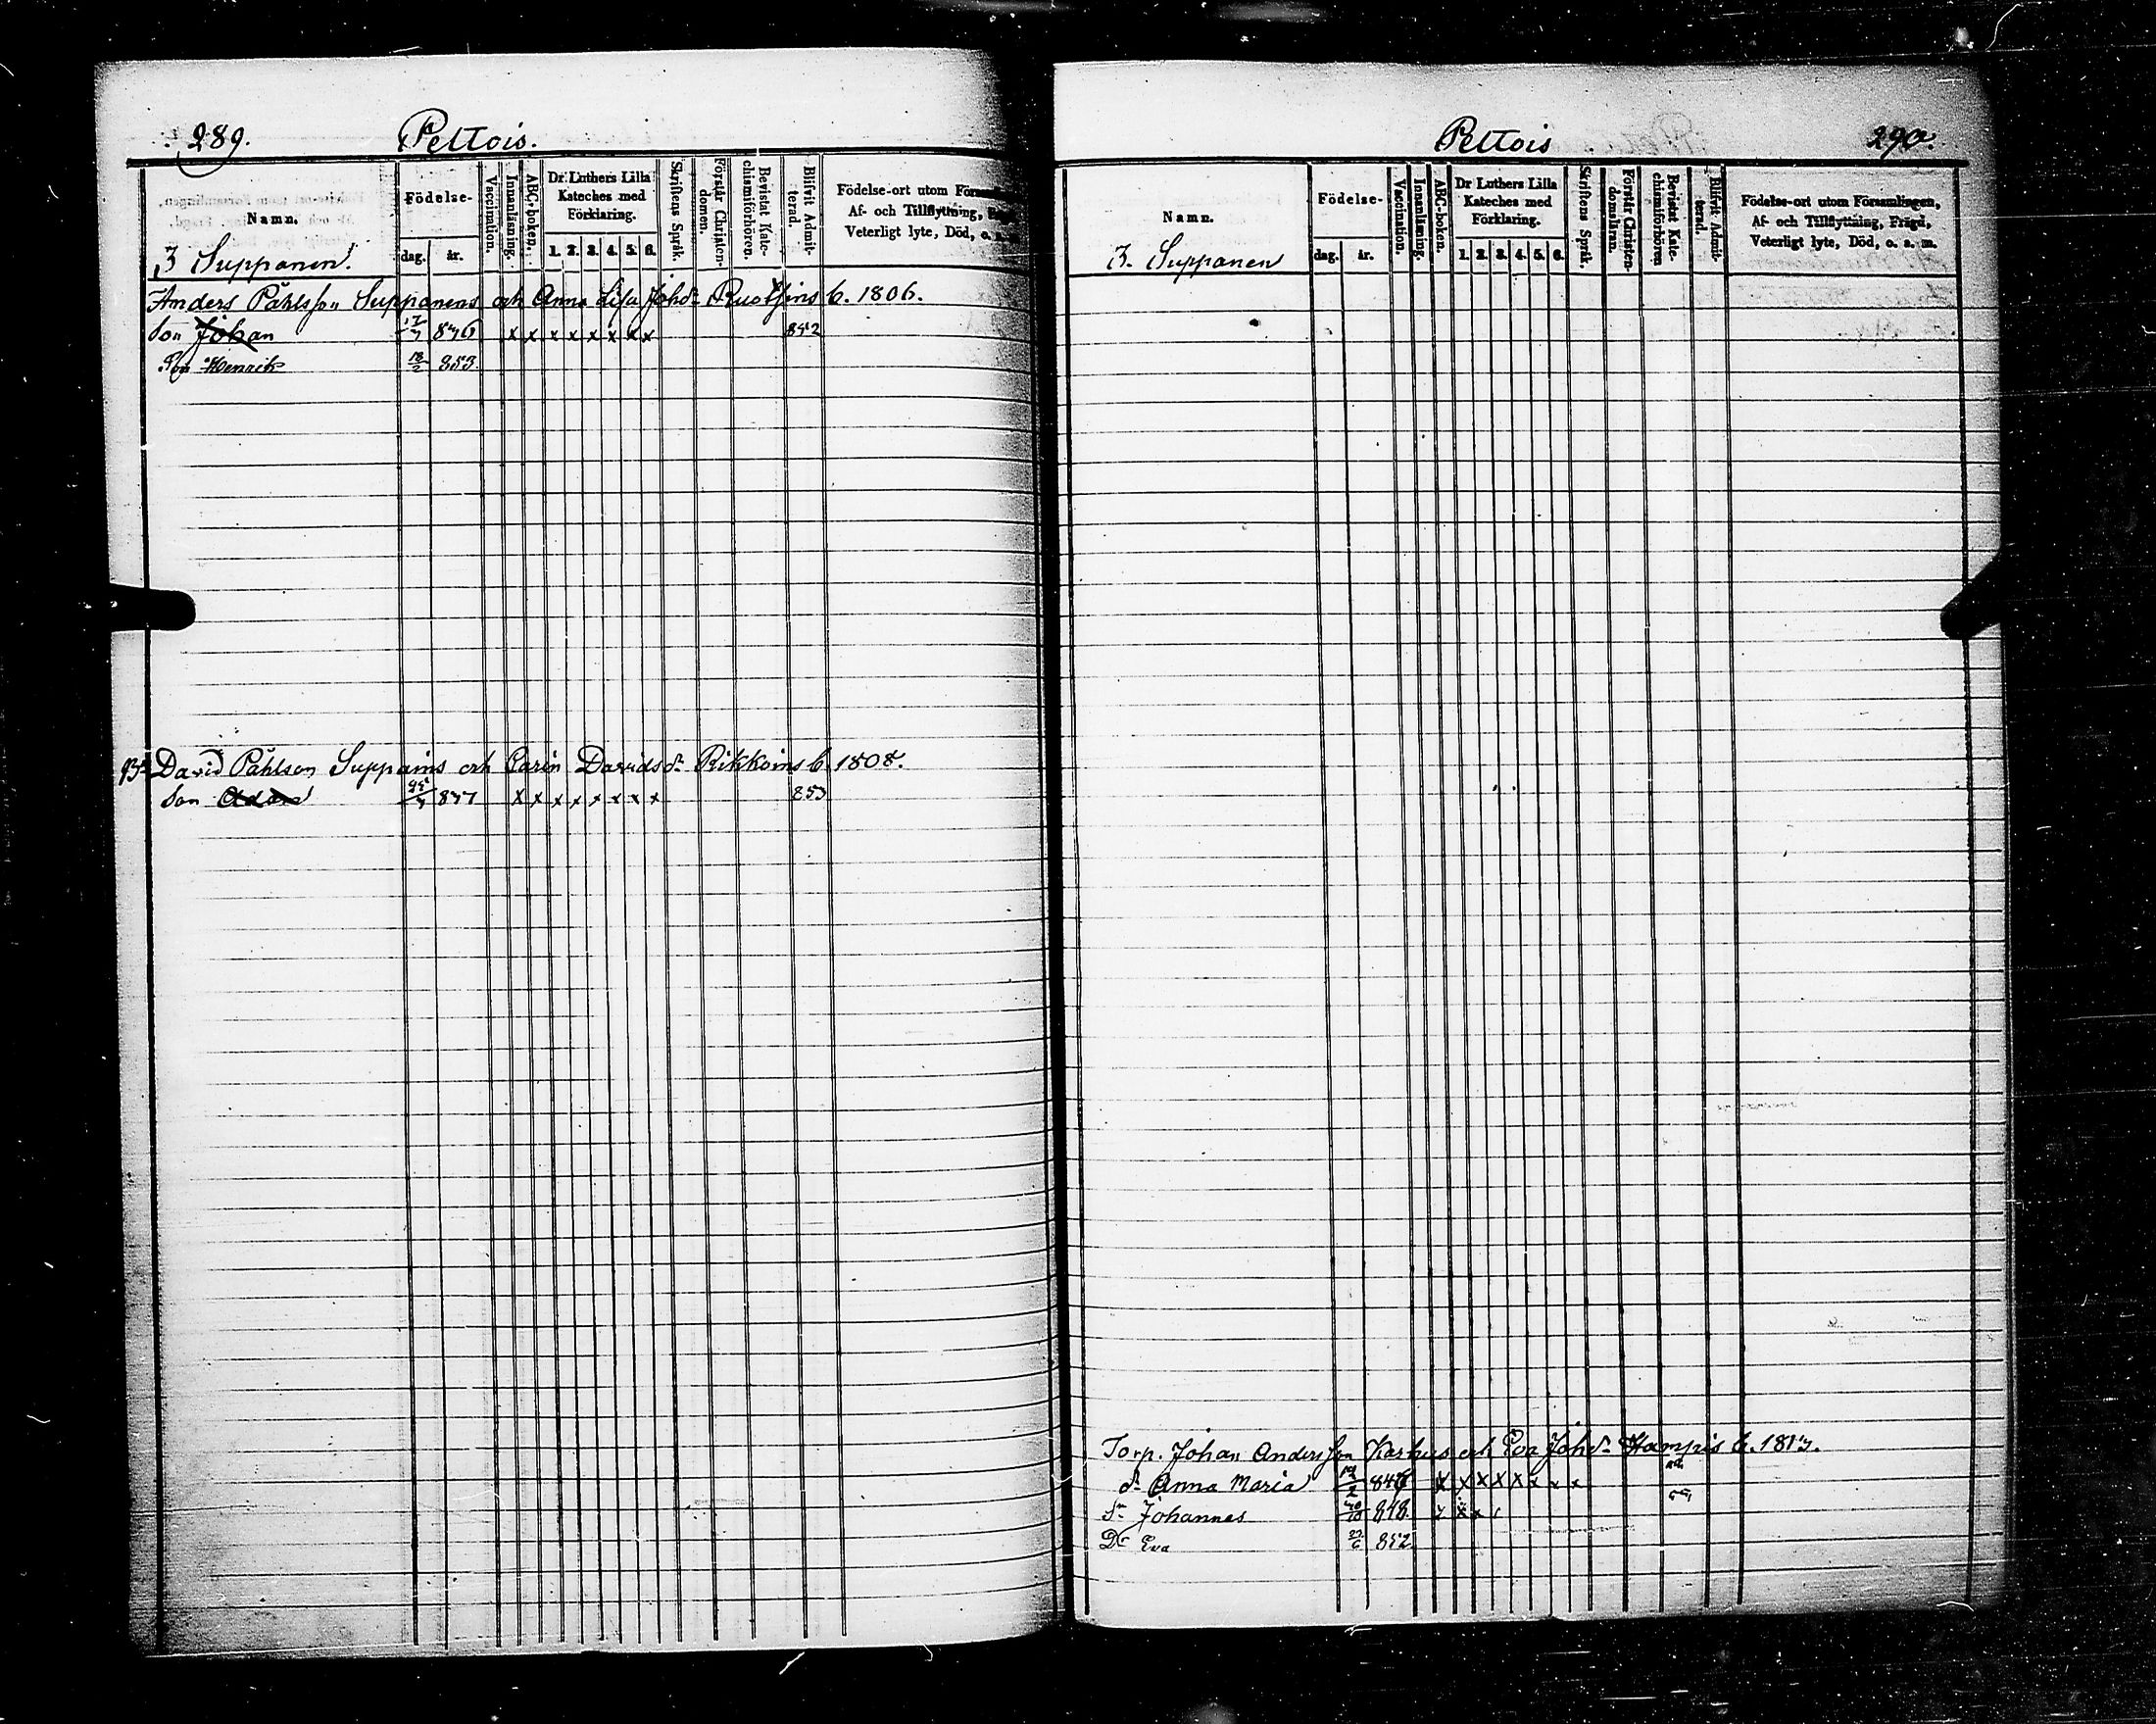 289.
Pettois.
Namn.
Födelse-
dag. år.
Vaccination.
Innanläsning.
ABC-boken.
Dr Luthers Lilla
Kateches med
Förklaring.
1. 2. 3. 4. 5. 6.
Skriftens Språk.
Förstår Christen-
domen.
Bevistat Kate-
chismiförhören.
Blifvit Admit-
terad.
Födelse-ort utom
Af- och Tillflyttning,
Veterligt lyte, Död, o. a. m.
3 Suppanen.
Anders Påhlss:n Suppanens och Anna Lisa Johd:r b. 1806.
Son Johan 17/7 836 x x x x x x x x 852
Son Henrik 18/2 853
David Påhlson Suppains och Carin Davidsd:r Rikkoins b. 1808.
Son Adam 837 x x x x x x x x 853
Pettois
290.
Namn.
Födelse-
dag. år.
Vaccination.
Innanläsning.
ABC-boken.
Dr Luthers Lilla
Kateches med
Förklaring.
1. 2. 3. 4. 5. 6.
Skriftens Språk.
Förstår Christen-
domsläran.
Bevistat Kate-
chismiförhören
Blifvit Admit-
terad.
Födelse-ort utom Församlingen,
Af- och Tillflyttning, Frägd,
Veterligt lyte, Död, o. a. m.
3. Suppanen
Torp. Johan Andersson Karhus och Eva Johd:r Hampis b.
d:r Anna Maria x x x x x x x x
S:n Johannes 848.
D:r Eva 852